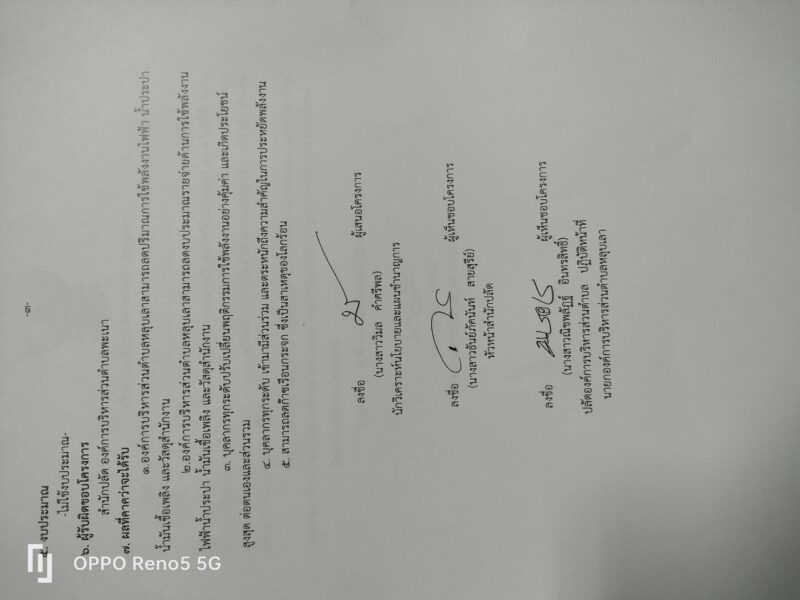 -๓-
๕. งบประมาณ
-ไม่ใช้งบประมาณ-
๖. ผู้รับผิดชอบโครงการ
สำนักปลัด องค์การบริหารส่วนตำบลพะเนา
๗. ผลที่คาดว่าจะได้รับ
๑. องค์การบริหารส่วนตำบลหลุบเลาสามารถลดปริมาณการใช้พลังงานไฟฟ้า น้ำประปา
น้ำมันเชื้อเพลิง และวัสดุสำนักงาน
๒. องค์การบริหารส่วนตำบลหลุบเลาสามารถลดงบประมาณรายจ่ายด้านการใช้พลังงาน
ไฟฟ้าน้ำประปา น้ำมันเชื้อเพลิง และวัสดุสำนักงาน
๓. บุคลากรทุกระดับปรับเปลี่ยนพฤติกรรมการใช้พลังงานอย่างคุ้มค่า และเกิดประโยชน์
สูงสุด ต่อตนเองและส่วนรวม
๔. บุคลากรทุกระดับ เข้ามามีส่วนร่วม และตระหนักถึงความสำคัญในการประหยัดพลังงาน
๕. สามารถลดก๊าซเรือนกระจก ซึ่งเป็นสาเหตุของโลกร้อน
ลงชื่อ ผู้เสนอโครงการ
(นางสาววิมล คำศรีพล)
นักวิเคราะห์นโยบายและแผนชำนาญการ
ลงชื่อ ผู้เห็นชอบโครงการ
(นางสาวธันย์ภัคนันท์ สายสุรีย์)
หัวหน้าสำนักปลัด
ลงชื่อ ผู้เห็นชอบโครงการ
(นางสาวณิชพลัฏฐ์ อินทรสิทธิ์)
ปลัดองค์การบริหารส่วนตำบล ปฏิบัติหน้าที่
นายกองค์การบริหารส่วนตำบลหลุบเลา
OPPO Reno5 5G